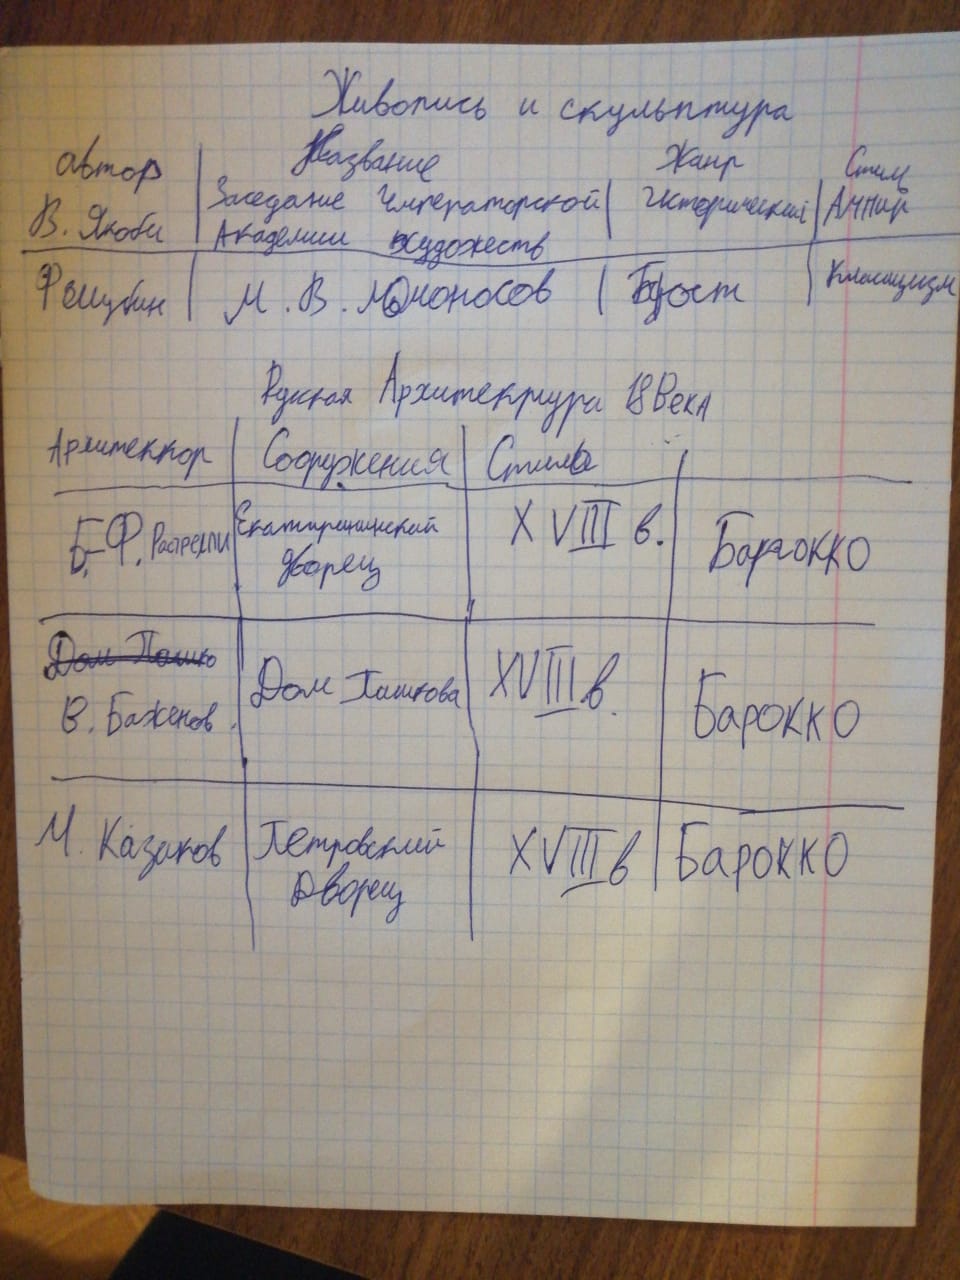 Живопись и скульптура
автор Название Жанр Стиль
В. Якоби Заседание Императорской Исторический Ампир
Академии художеств
Ф Шубин М. В. Ломоносов Бюст Классицизм
Русская Архитектура 18 Века
Архитектор Сооружения Стиль
Б.-Ф. Растрелли Екатерининский дворец XVIII в. Барокко
Дом Пашко
В. Баженов. Дом Пашкова XVIII в. Барокко
М. Казаков Петровский XVIII в Барокко
Дворец